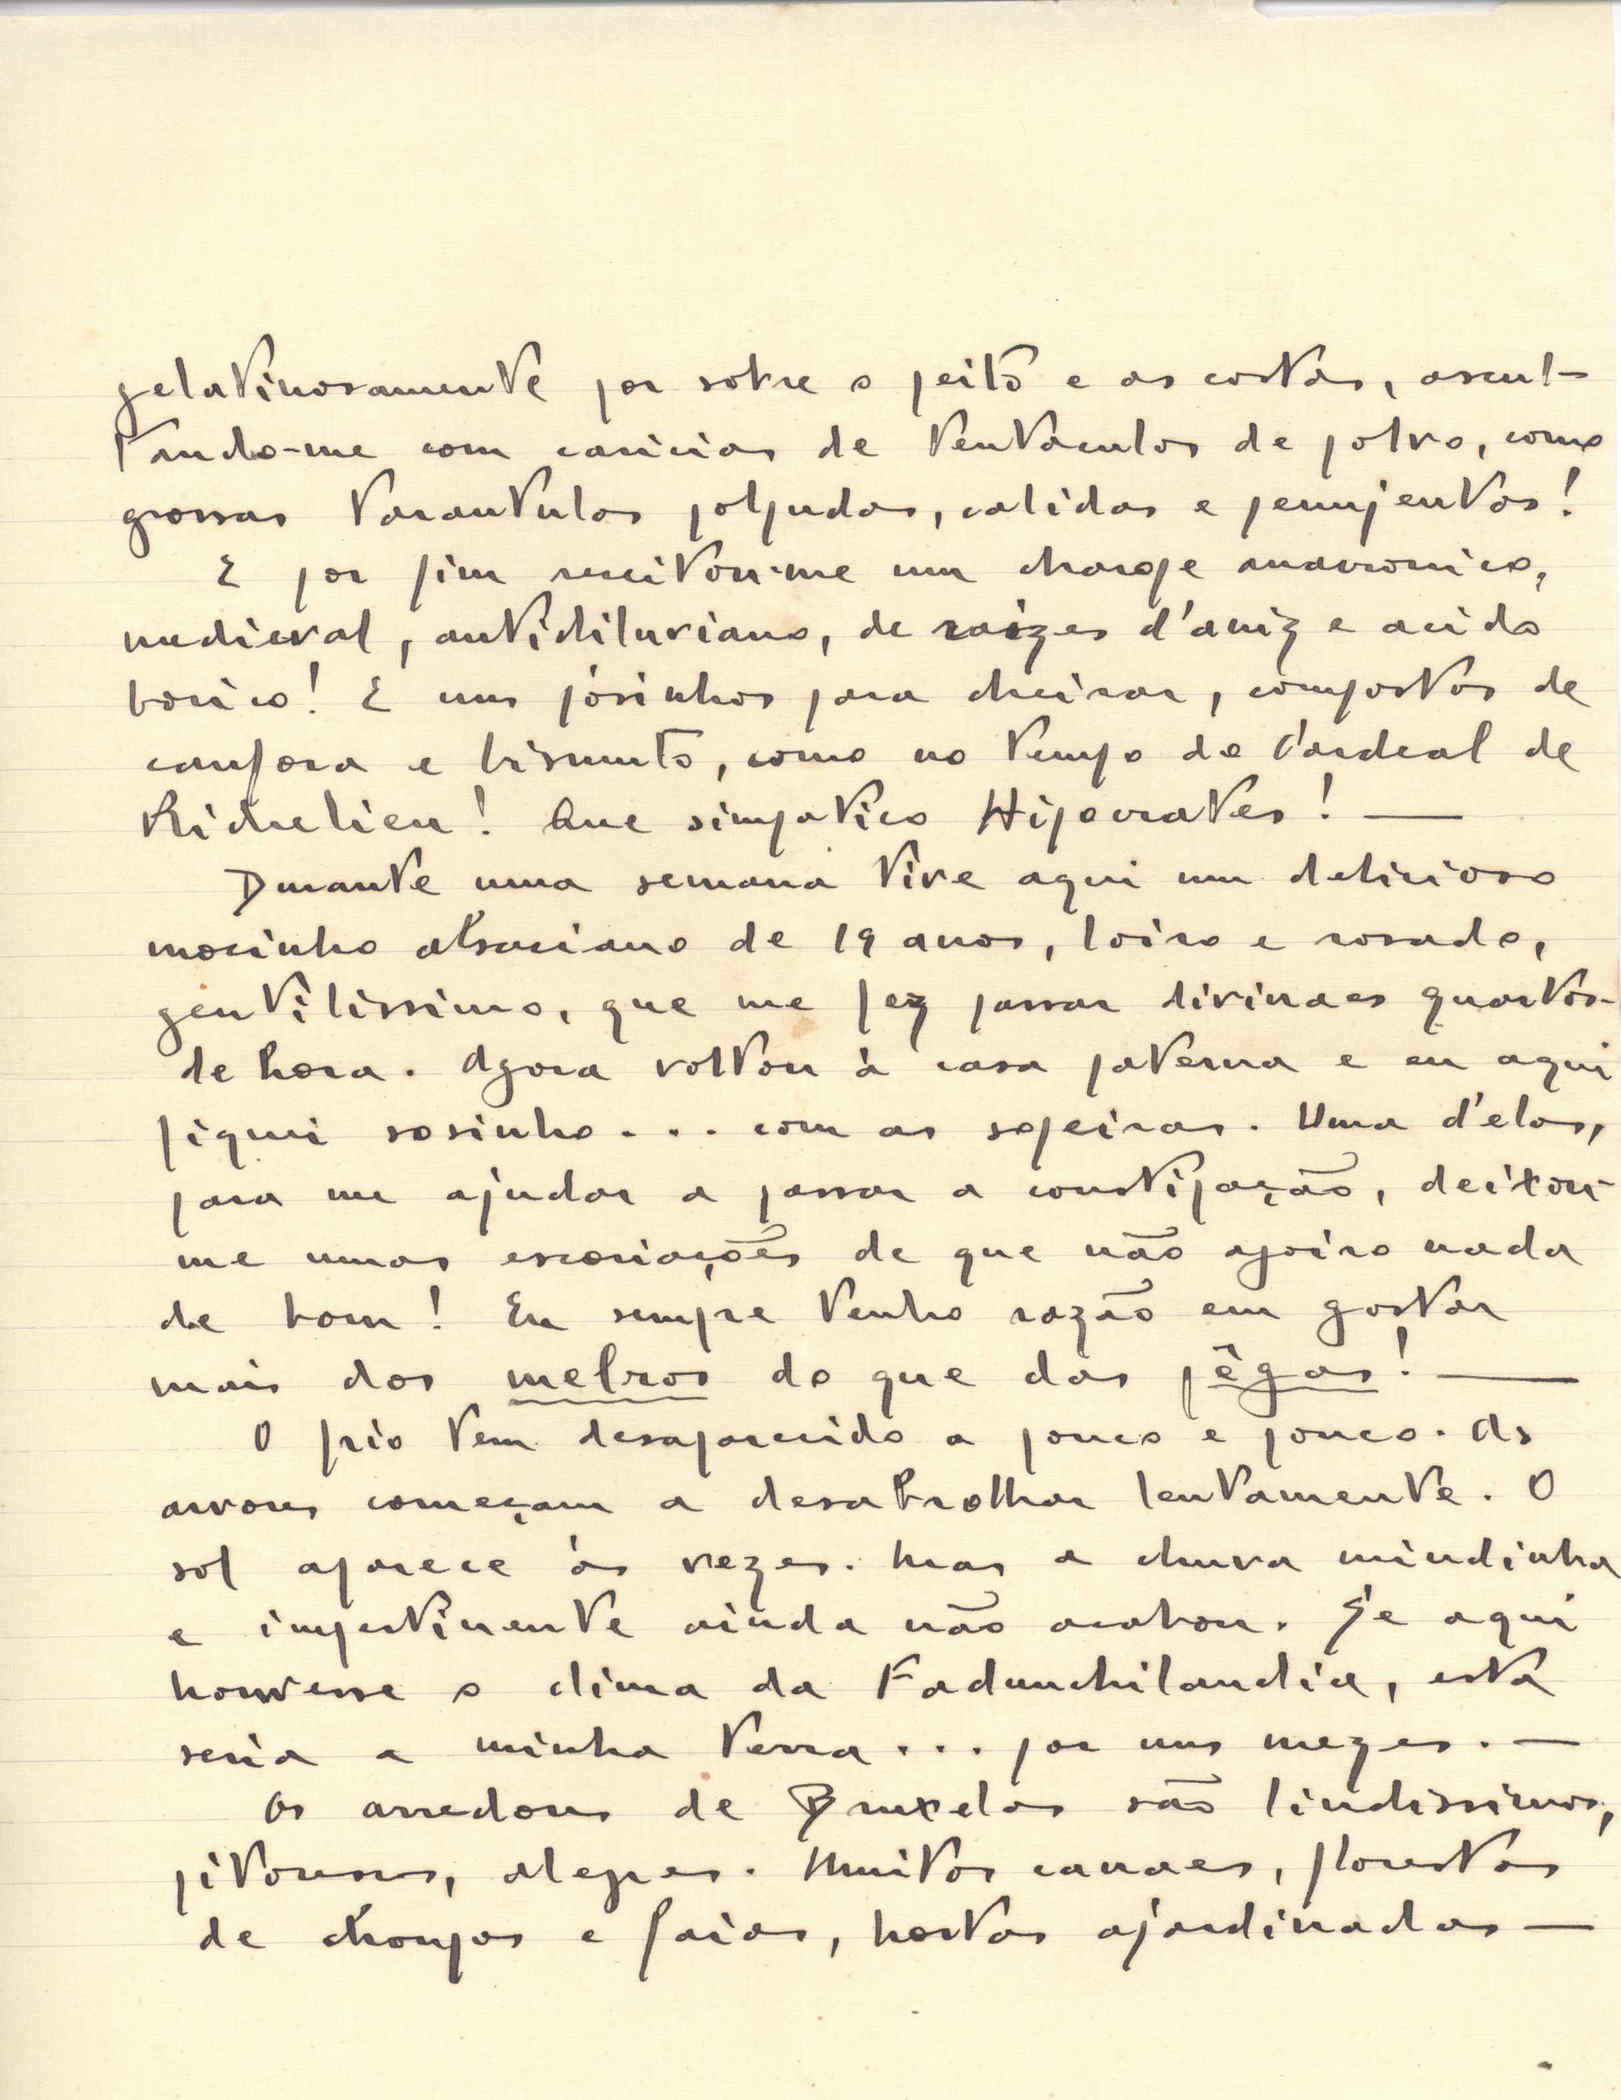 gelatinosamente por sobre o peito e as costas, ascul-
tando-me com caricias de tentaculos de polvo, como
grossas tarantulas polpudas, calidas e penujentas!
E por fim receitou-me um charope anacronico,
medieval, antidiluviano, de raizes d'aniz e acido
borico! E uns pósinhos para cheirar, compostos de
canfora e bismuto, como no tempo do Cardeal de
Richelieu! Que simpatico Hipocrates! —
Durante uma semana tive aqui um delicioso
mocinho alsaciano de 19 anos, loiro e rosado,
gentilissimo, que me fez passar divinaes quartos-
de hora. Agora voltou à casa paterna e eu aqui
fiquei sosinho... com as sopeiras. Uma d'elas,
para me ajudar a passar a constipação, deixou-
me umas escoriações de que não agoiro nada
de bom! Eu sempre tenho razão em gostar
mais dos melros do que das pêgas! —
O frio tem desaparecido a pouco e pouco. As
arvores começam a desabrolhar lentamente. O
sol aparece ás vezes. Mas a chuva miudinha
e impertinente ainda não acabou. Se aqui
houvesse o clima da Fadunchilandia, esta
seria a minha terra... por uns mezes. —
Os arredores de Bruxelas são lindissimos,
pitorescos, alegres. Muitos canaes, florestas
de choupos e faias, hortas ajardinadas —